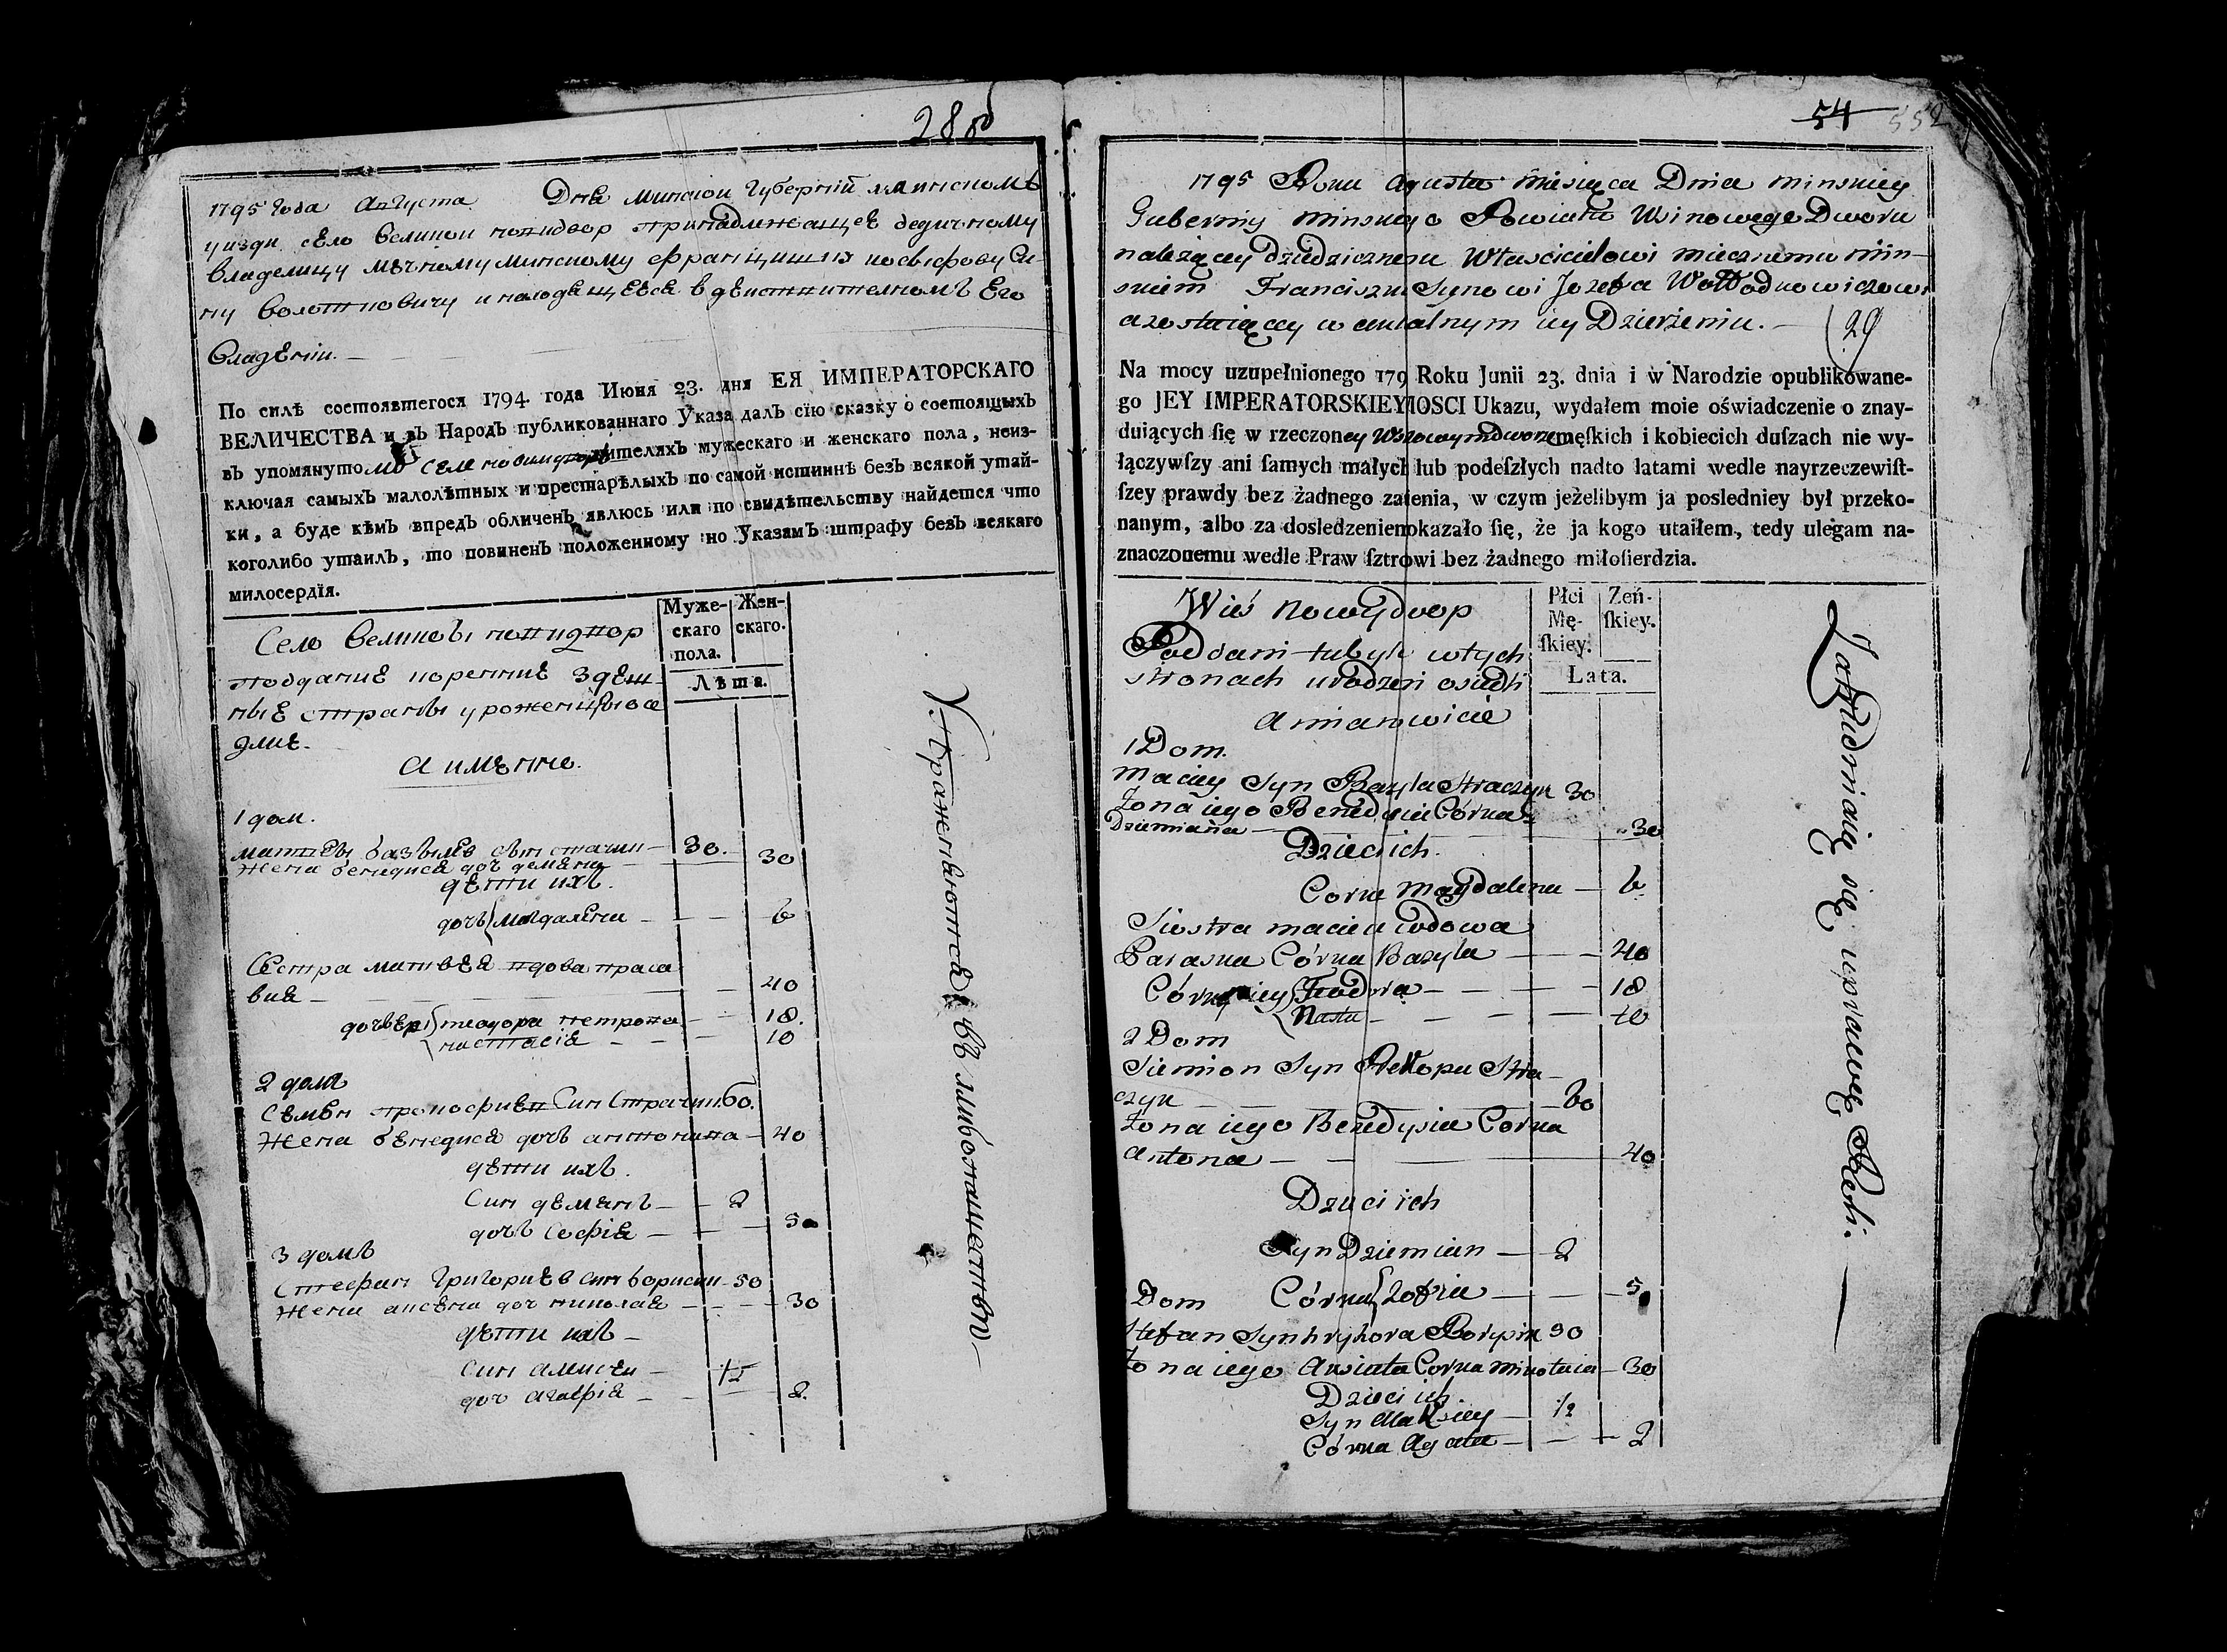 28 об
1795 года Августа Дня Минской Губерний Минскомъ
уизди село Великои новидвор принадлежащее дедичному
владелицу мечному Минскому Францишку Иосифову Си-
ну Волотковичу и находящеесе в действителномъ Его
владении.
По силѣ состоявшегося 1794. года Июня 23. дня ЕЯ ИМПЕРАТОРСКАГО
ВЕЛИЧЕСТВА и въ Народъ публикованнаго Указа далъ сїю сказку о состоящыхъ
въ упомянутомъ селе новидворе жителяхъ мужескаго и женскаго пола, неиз-
ключая самыхъ малолѣтныхъ и престарѣлыхъ по самой истиннѣ безъ всякой утай-
ки, а буде кѣмъ впредь обличенъ явлюсь или по свидѣтельству найдется что
коголибо утаилъ, то повиненъ положенному по Указамъ штрафу безъ всякаго
милосердїя.
Муже-
скаго
пола.
Жен-
скаго.
Лѣта.
Село Великои новидвор
подание коренние здеш-
ные страны уроженцы осе
длие.
А имянно.
1 дом.
матвеи базылев сын стачин 30.
жена бенедися доч демяна 30
дети ихъ.
дочъ магдалена 6
Сестра матвея вдова праса
вия 40
дочери теодора петрона 18.
настасия 10
2 домъ
Семен прокофиев Син Страчин 60.
Жена бенедися дочъ антонина 40
дети ихъ.
Син демянъ 2
дочъ София 5
3 домъ
Стефан Григориев син борисик 50
жена аксеня доч николая 30
дети ихъ
син алексеи 1/2
доч агафия 2.
Упражняются въ хлибопашестве
54 552
1795 Roku Agusta Miesiąca Dnia Minskiey
Guberniy Minskiego Powiatu W Nowego Dworu
należącey dziedzicznemu Właścicielowi miecznemu Min-
skiem Franciszku Synowi Jozefa Wołłodkowiczowi
a zostaiącey w aktalnym iey Dzierżeniu.
29
Na mocy uzupełnionego 179 Roku Junii 23. dnia i w Narodzie opublikowane-
go JEY IMPERATORSKIEY MOSCI Ukazu, wydałem moie oświadczenie o znay-
duiących ſię w rzeczoney W Nowymdworze męſkich i kobiecich duſzach nie wy-
łączywſzy ani ſamych małych lub podeſzłych nadto latami wedle nayrzeczewiſt-
ſzey prawdy bez żadnego zatenia, w czym jeżelibym ja posledniey był przeko-
nanym, albo za dosledzeniem okazało ſię, że ja kogo utaiłem, tedy ulegam na-
znaczonemu wedle Praw ſztrowi bez żadnego miłoſierdzia.
Płci
Mę-
ſkiey.
Zeń-
ſkiey.
Lata.
Wieś Nowydvop
Poddani tubyli w tych
stronach urodzeni osiedli
a mianowicie
1 Dom.
Maciey Syn Bazyla Straczyk 30
Zona iego Benedysia Córka
Dziemiana 30
Dzieci ich.
Corka Magdalena 6
Siostra macieia wdowa
Paraska Córka Bazyla 40
Córki iey Teodora 18
Nasta 10
2 Dom
Siemion Syn Prokopa Stra
czyk 60
Zona iego Benedysia Corka
Antona 40
Dzieci ich
Syn Dziemian 2
Córka Zofia 5
Dom
Stefan Syn hryhora Borysik 50
Zona iego Aksiuta Corka Mikołaia 30
Dzieci ich.
Syn Alaksiey 1/2
Córka Agata 2
Zatrudniaią się uprawę Roli.